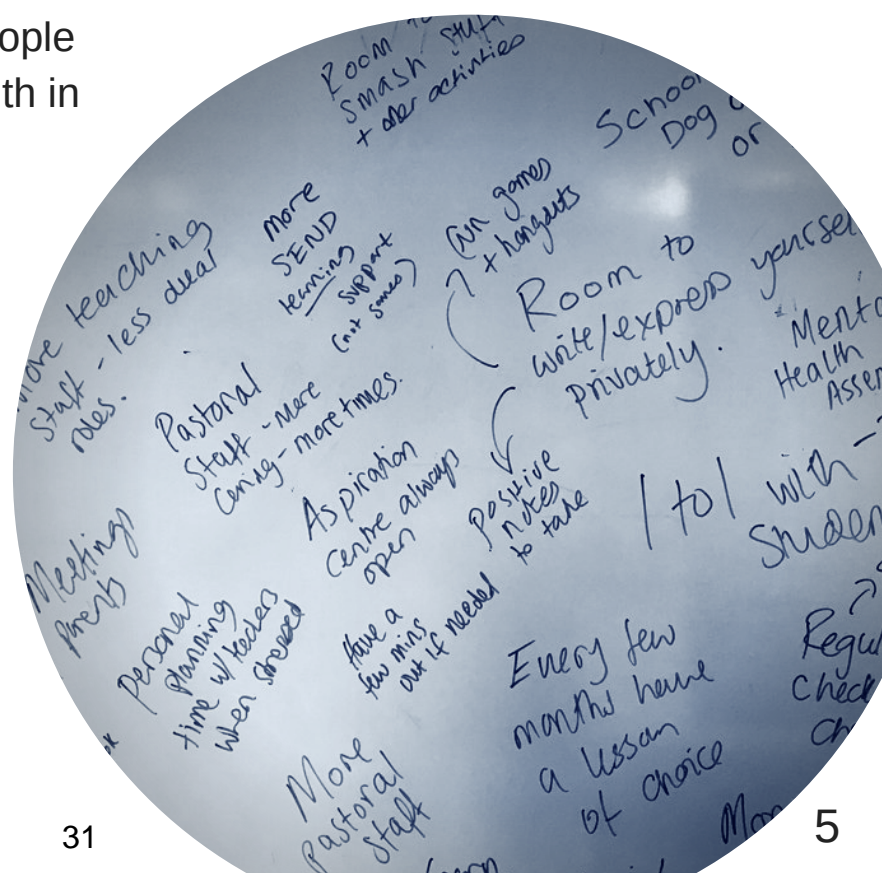 ople
th in
Room to
smash stuff
+ other activities
School
Dog
or
More teaching
staff - less dual
roles.
more
SEND
learning
support
(not sames)
fun games
+ hangouts
Room to
write/express yoursel
privately.
Mental
Health
Assem
Pastoral
Staff - more
caring - more times.
Aspiration
centre always
open
positive
notes
to take
1 to 1 with
Studen
Meetings
parents
personal
planning
time w/ teachers
when stressed
Have a
few mins
out if needed
Every few
months have
a lesson
of choice
Regul
Check
Ch
More
pastoral
staff
Mor
31
5